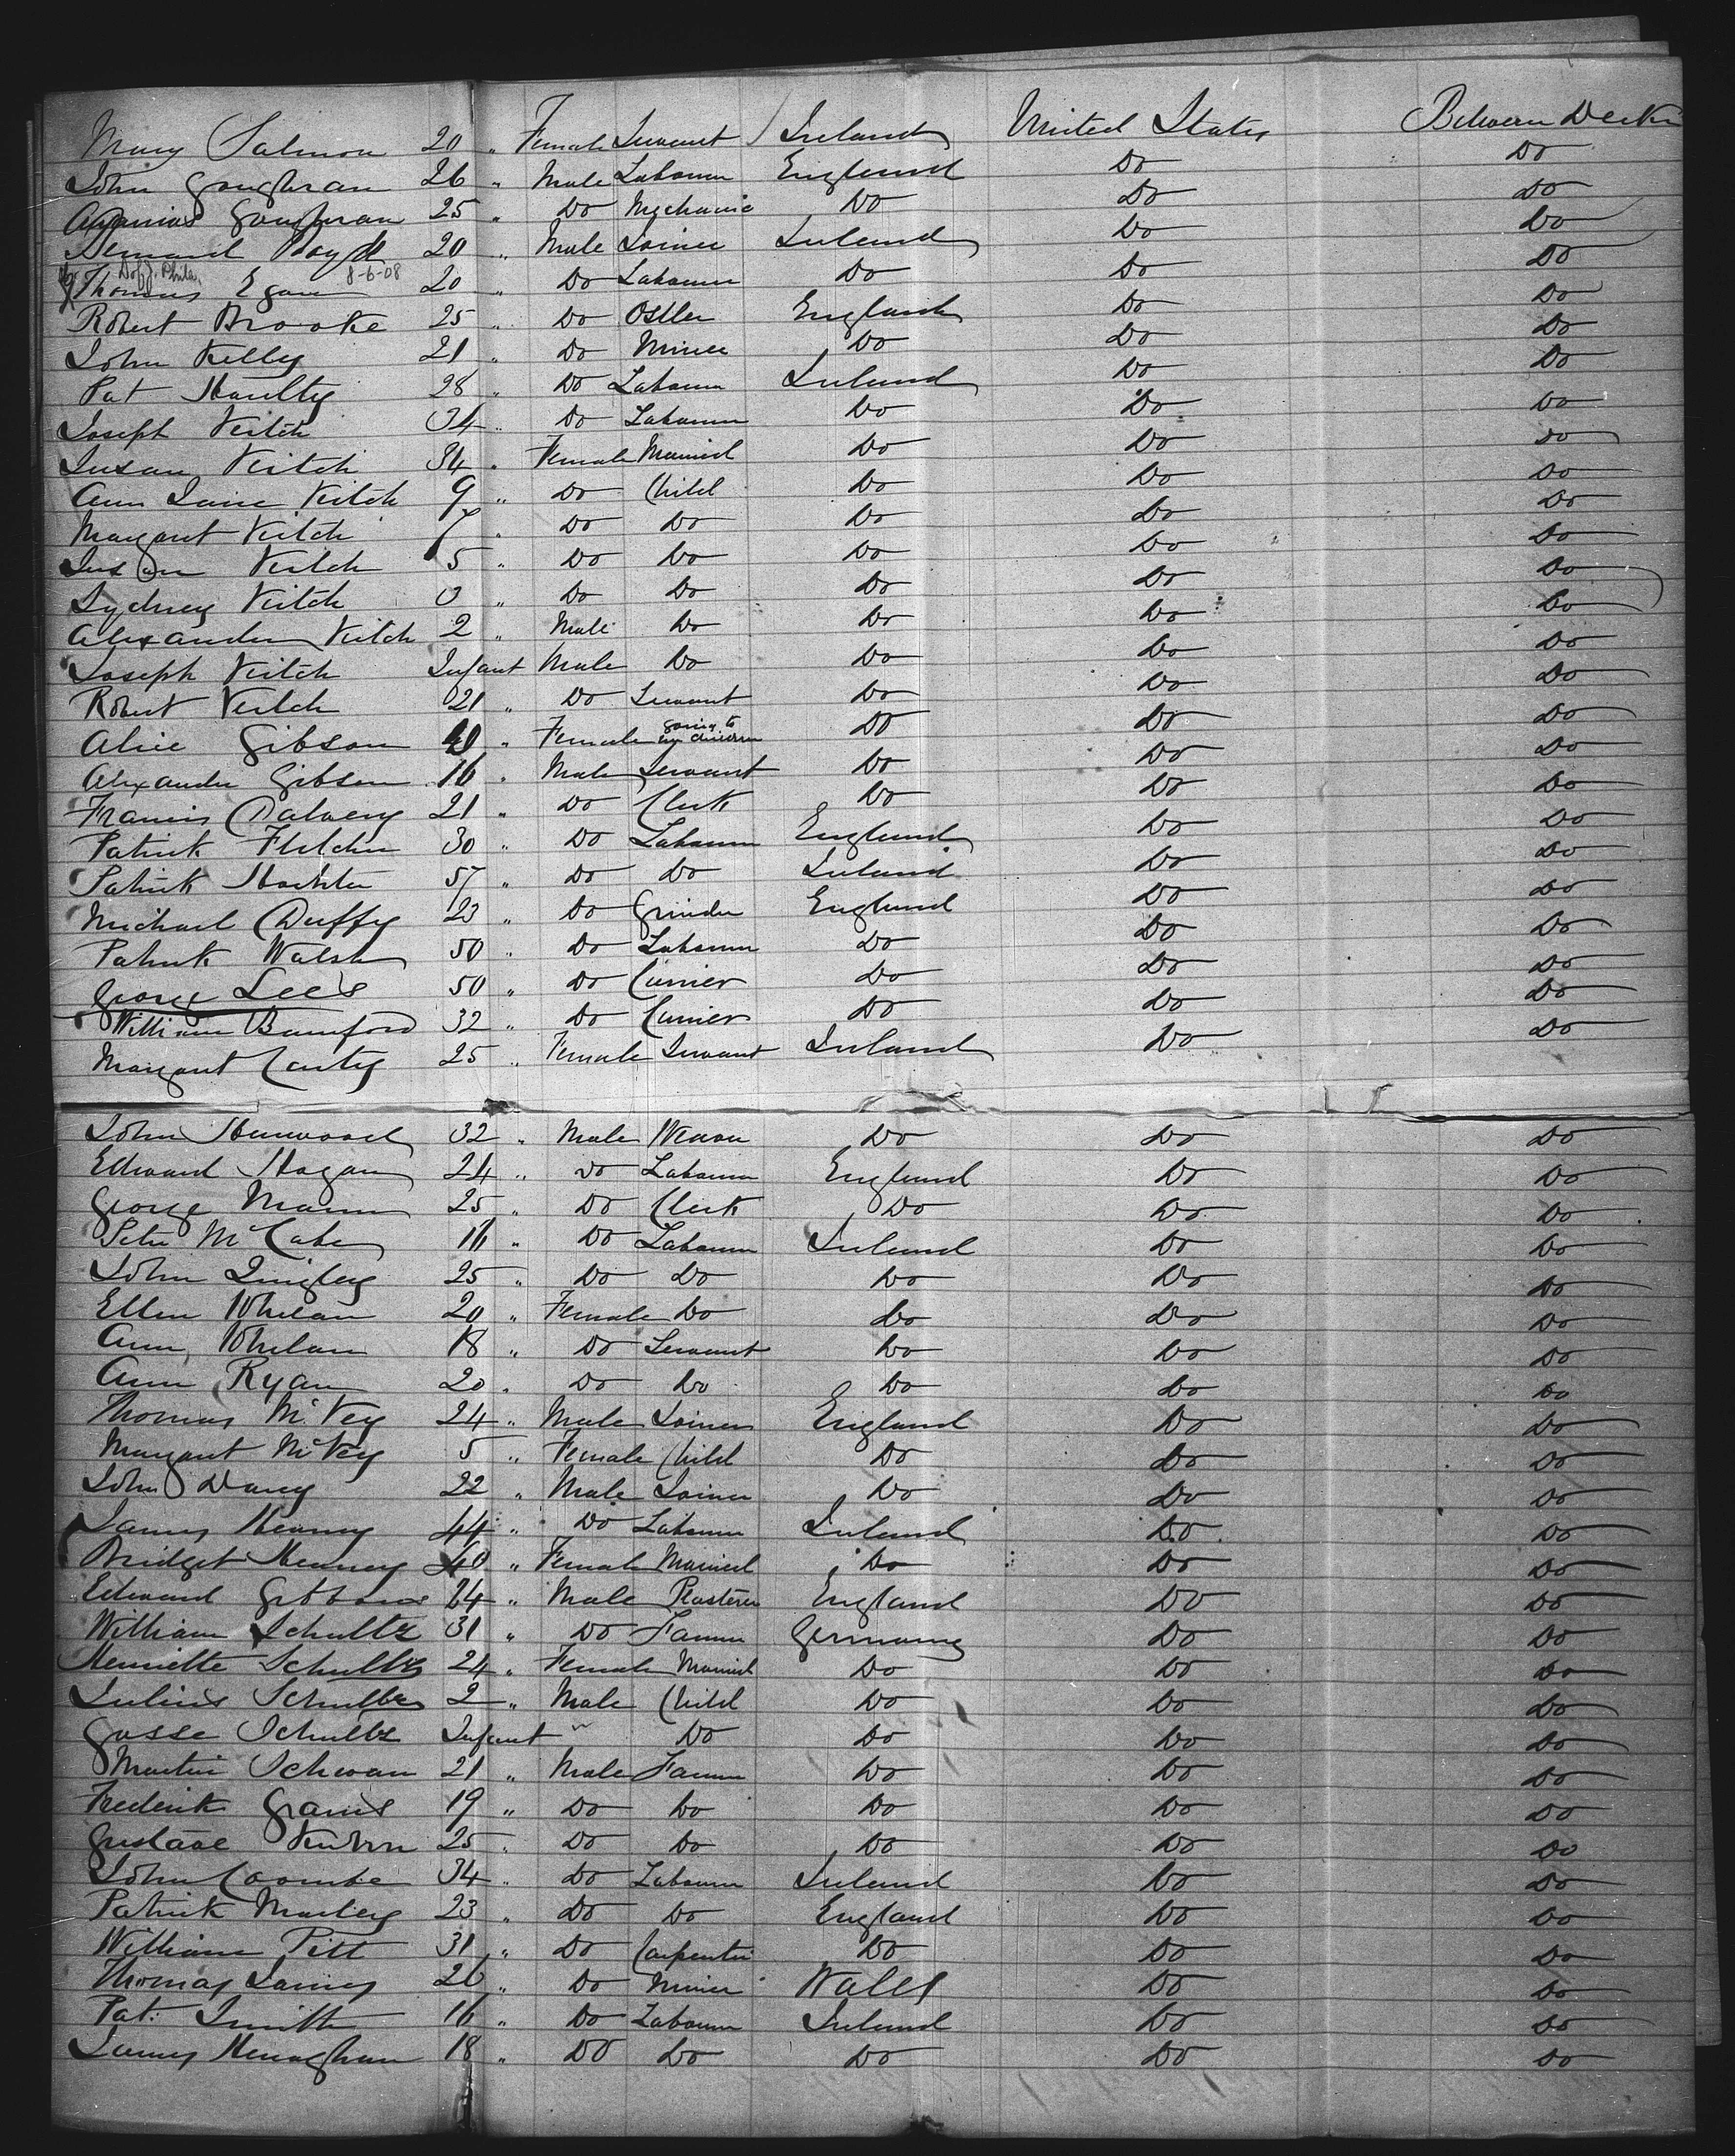 Mary Salmon 20 " Female Servant Ireland United States Between Decks
John Goughran 26 " Male Labourer England Do Do
Goughran 25 " Do Mechanic Do Do Do
Bernard Boyd 20 " Male Joiner Ireland Do Do
Phila. 8-6-08
Thomas Egan 20 " Do Labourer Do Do Do
Robert Brooke 25 " Do Ostler England Do Do
John Kelly 21 " Do Miner Do Do Do
Pat 28 " Do Labourer Ireland Do Do
Joseph Veitch 34 " Do Labourer Do Do Do
Susan Veitch 34 " Female Married Do Do Do
Ann Jane Veitch 9 " Do Child Do Do Do
Margaret Veitch 7 " Do Do Do Do Do
Susan Veitch 5 " Do Do Do Do Do
Sydney Veitch 3 " Do Do Do Do Do
Alexander Veitch 2 " Male Do Do Do Do
Joseph Veitch Infant Male Do Do Do Do
Robert Veitch 21 " Do Servant Do Do Do
Alice Gibson 40 " Female going to my children Do Do Do
Alexander Gibson 16 " Male Servant Do Do Do
Francis Dalvery 21 " Do Clerk Do Do Do
Patrick Fletcher 30 " Do Labourer England Do Do
Patrick 57 " Do Do Ireland Do Do
Michael Duffy 23 " Do Grinder England Do Do
Patrick Walsh 50 " Do Labourer Do Do Do
George Lees 50 " Do Currier Do Do Do
William Bamford 32 " Do Currier Do Do Do
Margaret Carty 25 " Female Servant Ireland Do Do
John Henwood 32 " Male Weaver Do Do Do
Edward Hogan 24 " Do Labourer England Do Do
George Mann 25 " Do Clerk Do Do Do
Peter McCabe 16 " Do Labourer Ireland Do Do
John Quigley 25 " Do Do Do Do Do
Ellen Whelan 20 " Female Do Do Do Do
Ann Whelan 18 " Do Servant Do Do Do
Ann Ryan 20 " Do Do Do Do Do
Thomas McVey 24 " Male Joiner England Do Do
Margaret McVey 5 " Female Child Do Do Do
John Davey 22 " Male Joiner Do Do Do
James Kearney 44 " Do Labourer Ireland Do Do
Bridget Kearney 40 " Female Married Do Do Do
Edward Gibbons 24 " Male Plasterer England Do Do
William Schultz 31 " Do Farmer Germany Do Do
Henriette Schultz 24 " Female Married Do Do Do
Julius Schultz 2 " Male Child Do Do Do
Gosse Schultz Infant " Do Do Do Do
Martin Schwan 21 " Male Farmer Do Do Do
Frederik 19 " Do Do Do Do Do
Gustave 25 " Do Do Do Do Do
John Coombe 34 " Do Labourer Ireland Do Do
Patrick Morley 23 " Do Do England Do Do
William Pitt 31 " Do Carpenter Do Do Do
Thomas James 26 " Do Miner Wales Do Do
Pat. Smith 16 " Do Labourer Ireland Do Do
James Henaghan 18 " Do Do Do Do Do